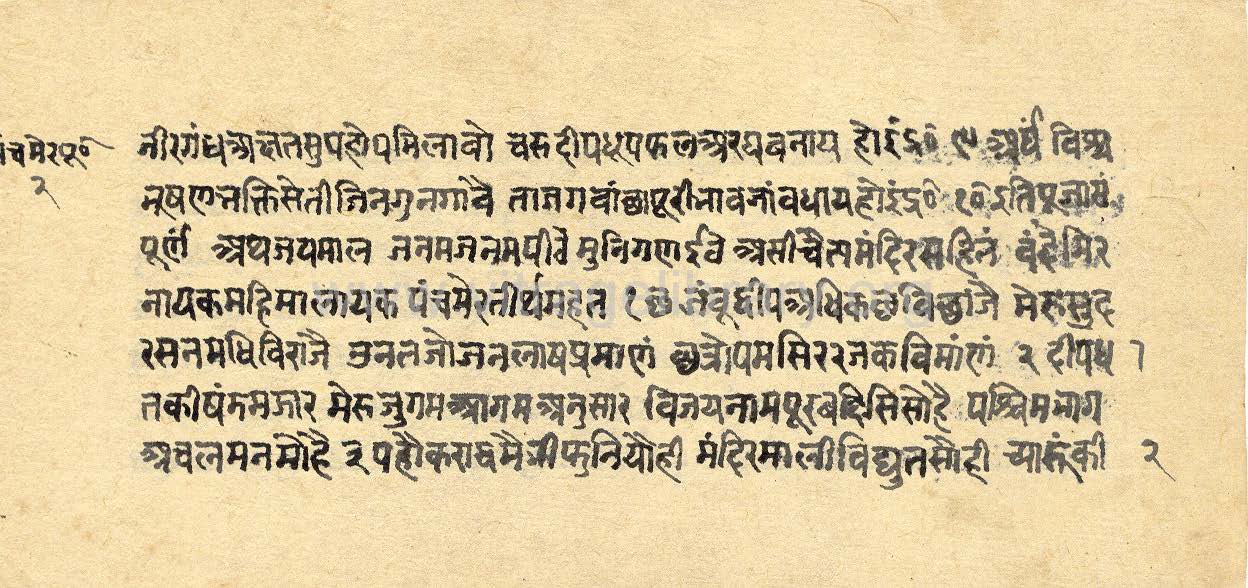 पंचमेरपू०
२
नीरगंध अक्षतसुपहोपमिलावो चरुदीपधूपफलअरघबनाय होइंद्र० ९ अर्घं विश्व
भूषणभक्तिसेतीजिनगुनगावै ताजगवांछापूरीभावजांवधायहोइंद्र० १० इतिपूजासं
पूर्णं अथजयमाल जनमजनमपीवे मुनिगणईवे असीचैत्यमंदिरसहितं वंदैगिर
नायकमहिमालायक पंचमेरतीर्थमहत १ छ जंबूद्वीपअधिकछविछाजै मेरुसुद
रसनमधिविराजै उनतजोजनलाषप्रमाणं छत्रोपमसिररजकविमांणं २ दीपध १
तकीषंडमझार मेरुजुगमआगमअनुसार विजयनामपूरबदिसिसोहै पश्चिमभाग
अचलमनमोहै ३ पहौकराद्धमै भीफुनियौही मंदिरमालीविद्युतसौही च्यारूंकी २